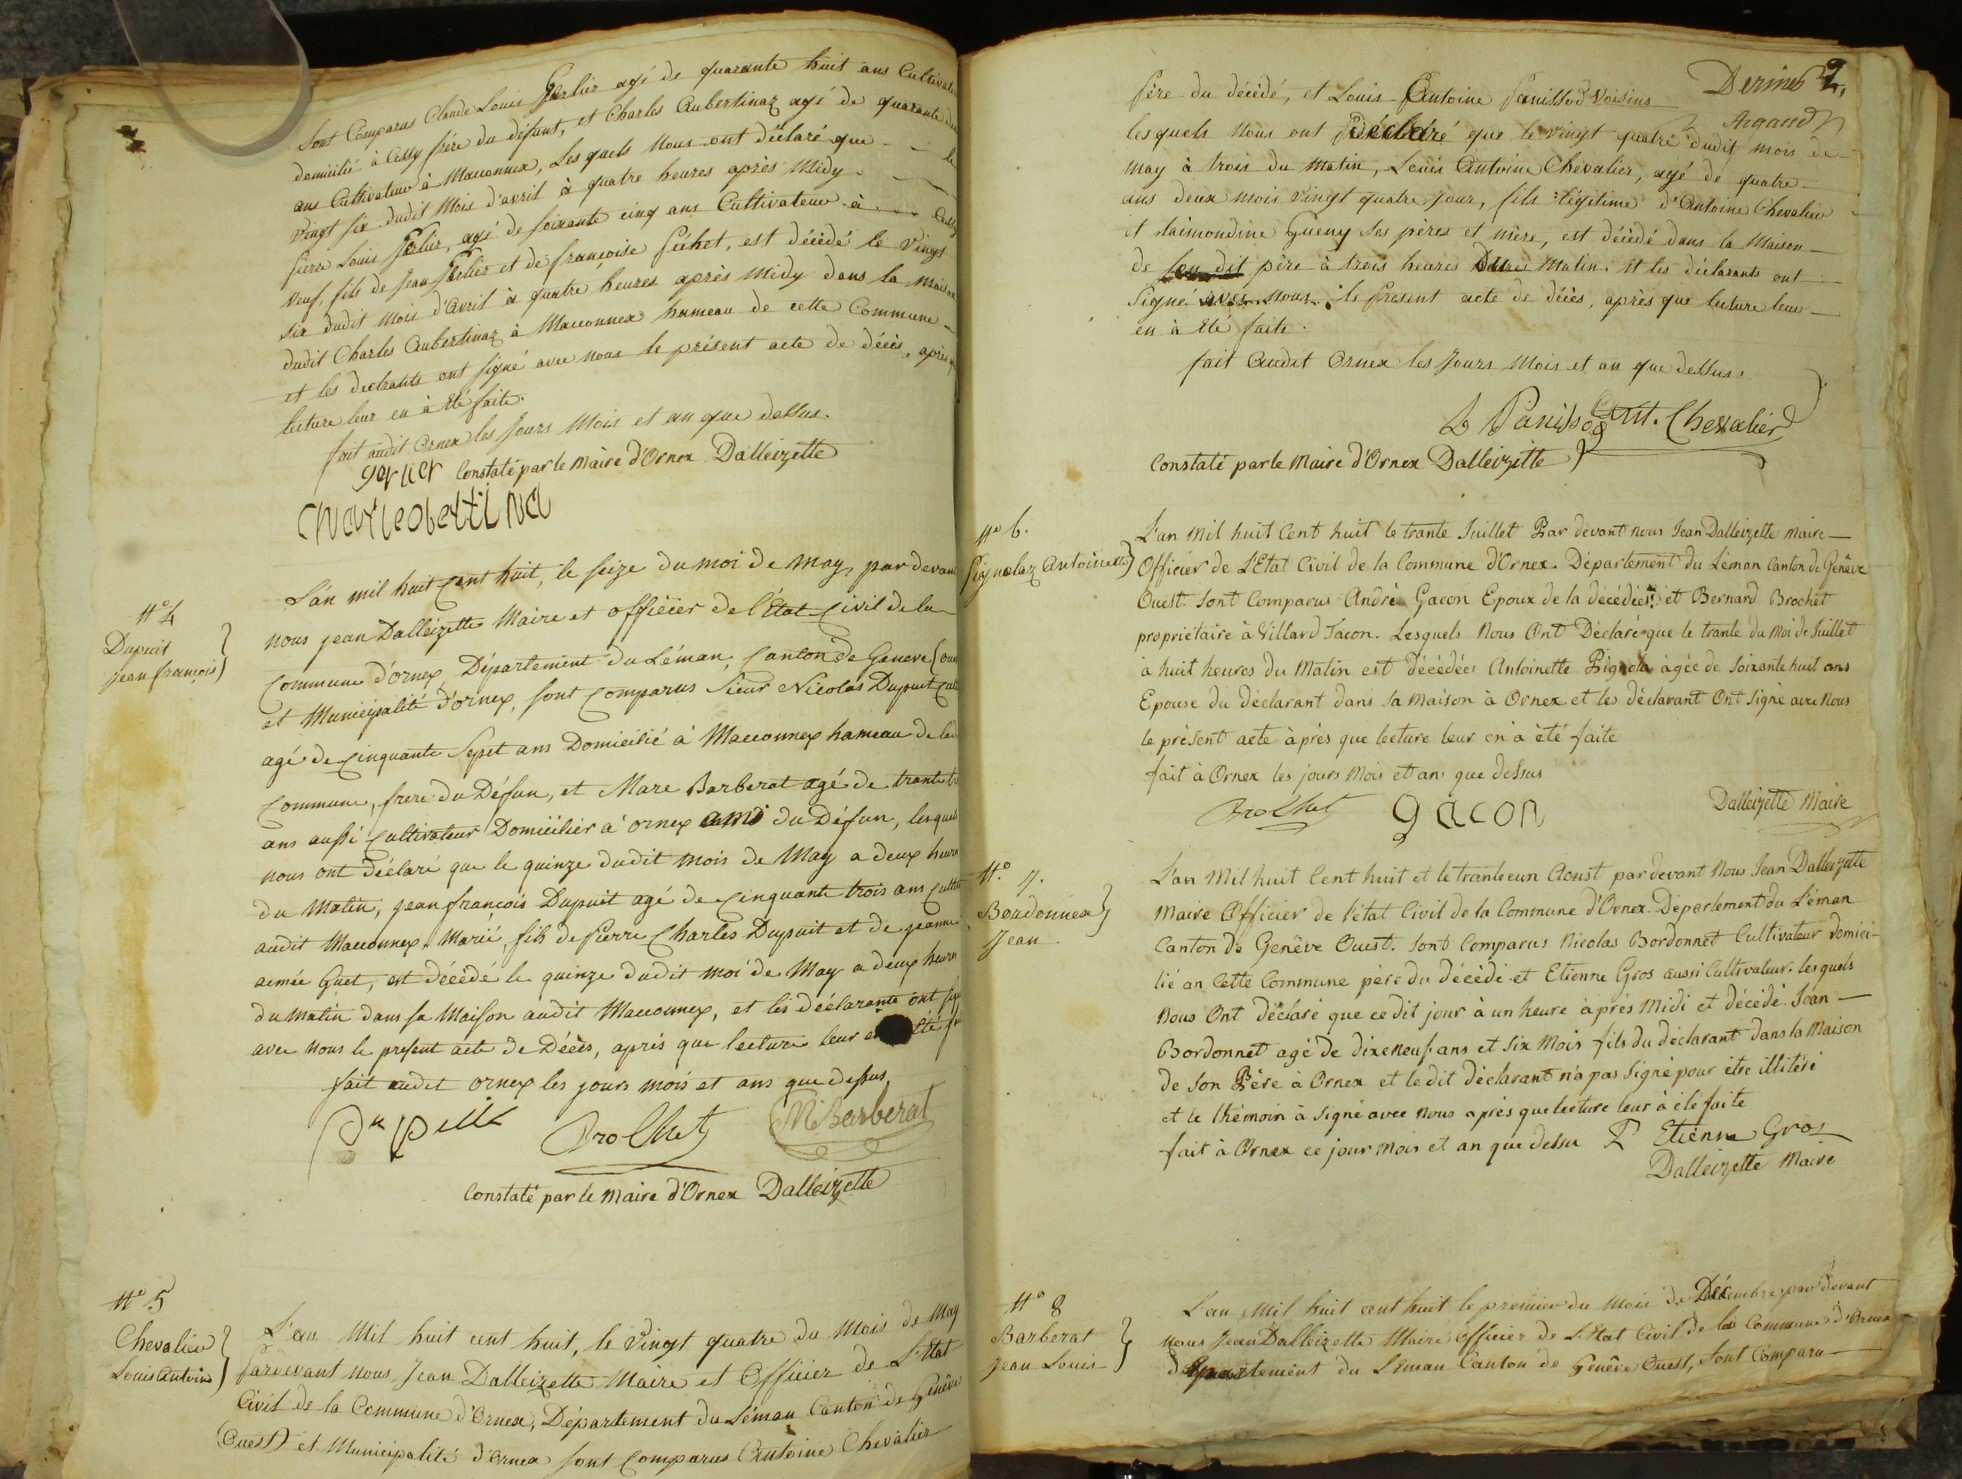 Sont Comparus Claude Louis Gerlier agé de quarante huit ans Cultivate
domicilié à Cessy frère du défunt, et Charles Aubertinaz agé de quarante
ans Cultivateur à Maconnex, Les quels Nous ont déclaré que le
vingt six dudit Mois d'avril à quatre heures après Midy
pierre Louis Gerlier, agé de soixante cinq ans Cultivateur à Cessy
veuf, fils de Jean Gerlier et de françoise Péchet, est décédé le vingt
six dudit mois d'avril à quatre heures après Midy dans la Maison
dudit Charles Aubertinaz à Maconnex hameau de cette Commune
et les declarants ont signé avec nous le présent acte de décès, après
lecture leur en à été faite.
fait audit Ornex les Jours Mois et an que dessus.
gerlier Constaté par le Maire d'Ornex Dalleizette
Charleobertina
N° 4
Dupuit
jean françois
L'an mil huit Cent huit, le seize du moi de May, par devan
nous jean Dalleizette Maire et officier de l'Etat Civil de la
Commune d'ornex, Département du Léman, Canton de Geneve (oue
et Municipalité d'ornex, sont Comparus Sieur Nicolas Dupuit Cul
agé de Cinquante Sept ans Domicilié à Maconnex hameau de
Commune, frere du Défun, et Marc Barberat agé de trante
ans aussi Cultivateur Domicilier à ornex ami du Défun, lesquel
nous ont déclaré que le quinze dudit mois de May a deux heure
du Matin, jean françois Dupuit agé de Cinquante trois ans Cultiv
audit Maconnex. Marié, fils de Pierre Charles Dupuit et de jeanne
aimée Guet, est décédé le quinze dudit moi de May a deux heures
du matin dans sa Maison audit Maconnex, et les déclarants ont sig
avec nous le present acte de Décès, après que lecture leur en été
fait audit ornex les jours mois et ans que dessus
Brochet M Barberat
Constaté par le maire d'Ornex Dalleizette
N° 5
Chevalier
Louis Antoine
L'an Mil huit cent huit, le vingt quatre du Mois de May
Pardevant nous Jean Dalleizette Maire et Officier de L'Etat
Civil de la Commune d'Ornex, Département du Léman Canton de Genêve
(Ouest) et Municipalité d'Ornex sont Comparus Antoine Chevalier
2,
père du décédé, et Louis Antoine Panissod Voisins
Argand
lesquels nous ont déclaré que le vingt quatre dudit mois de
May à trois du matin, Louis Antoine Chevalier, agé de quatre
ans deux mois vingt quatre jour, fils légitime d'Antoine Chevalier
et Raimondine Gueny ses pères et mère, est décédé dans la Maison
de son dit père à trois heures du Matin. Et les déclarants ont
signé avec nous le Present acte de décès, après que lecture leur
en à été faite.
fait audit Ornex les Jours Mois et an que dessus.
L Panissod Ant. Chevalier
Constaté par le Maire d'Ornex Dalleizette
N° 6.
Pignolaz Antoinette
L'an Mil huit Cent huit le trante Juillet Par devant nous Jean Dalleizette Maire
Officier de L'Etat Civil de la Commune d'Ornex. Département du Léman Canton de Genêve
Ouest. Sont Comparus André Gacon Epoux de la décédée et Bernard Brochet
propriétaire à Villard Tacon. Lesquels Nous Ont Déclaré que le trante du Moi de Juillet
à huit heures du Matin est décédée Antoinette Pignola àgée de Soixante huit ans
Epouse du déclarant dans sa Maison à Ornex et les déclarant Ont signé avec Nous
le présent acte àprès que lecture leur en à été faite
fait à Ornex les jours Mois et an que dessus
Brochet gacon Dalleizette Maire
N° 7.
Bordonnex
Jean
L'an Mil huit Cent huit et le trante un Aoust par devant Nous Jean Dalleizette
Maire Officier de l'état Civil de la Commune d'Ornex. Département du Léman
Canton de Genève Ouest. sont Comparus Nicolas Bordonnet Cultivateur domici-
lié an Cette Commune père du décédé et Etienne Gros aussi Cultivateur. lesquels
Nous Ont déclaré que ce dit jour à un heure àprès Midi et décédé Jéan
Bordonnet agé de dixeneuf ans et six Mois fils du déclarant dans la Maison
de son Père à Ornex et le dit déclarant n'a pas Signé pour être illitéré
et le thémoin à Signé avec nous après que lecture leur à été faite
fait à Ornex ce jour Mois et an que dessu Etienne Gros
Dalleizette Maire
N° 8
Barberat
Jean Louis
L'an Mil huit cent huit le premier du mois de Décembre par devant
nous Jean Dalleizette Maire officier de L'Etat Civil de la Commune d'Ornex
département du Léman Canton de Genêve Ouest, sont Comparu